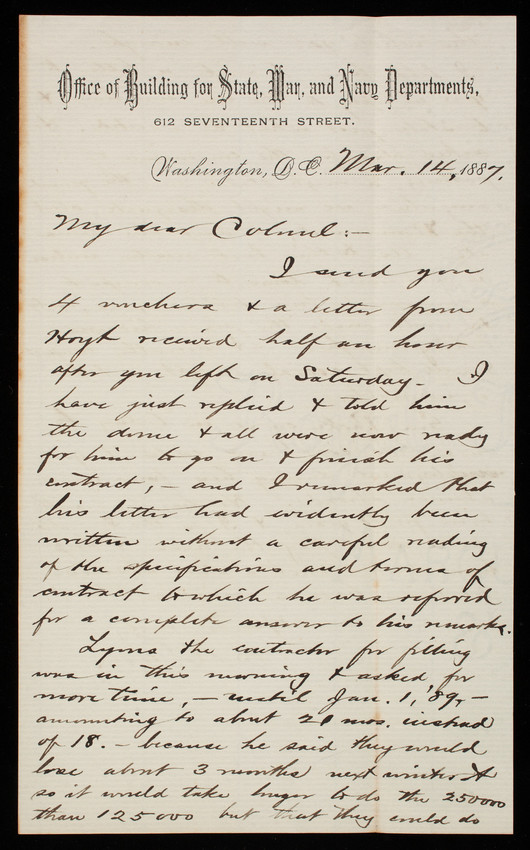 Office of Building for State, War, and Navy Departments,
612 SEVENTEENTH STREET.
Washington, D.C. Mar. 14, 1887.
My dear Colonel:—
I send you
4 vouchers & a letter from
Hoyt received half an hour
after you left on Saturday. I
have just replied & told him
the dome & all were now ready
for him to go on & finish his
contract, — and I remarked that
his letter had evidently been
written without a careful reading
of the specifications and terms of
contract to which he was referred
for a complete answer to his remarks.
Lyons the contractor for filling
was in this morning & asked for
more time, — until Jan. 1, '89, —
amounting to about 21 mos. instead
of 18. — because he said they would
lose about 3 months next winter &
so it would take longer to do the 250000
than 125000 but that they could do